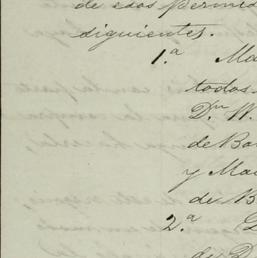 de esos permis
siguientes.
1.ª Ma
todos
D.n W.
de Ba
y Ma
de B
2.ª
de D